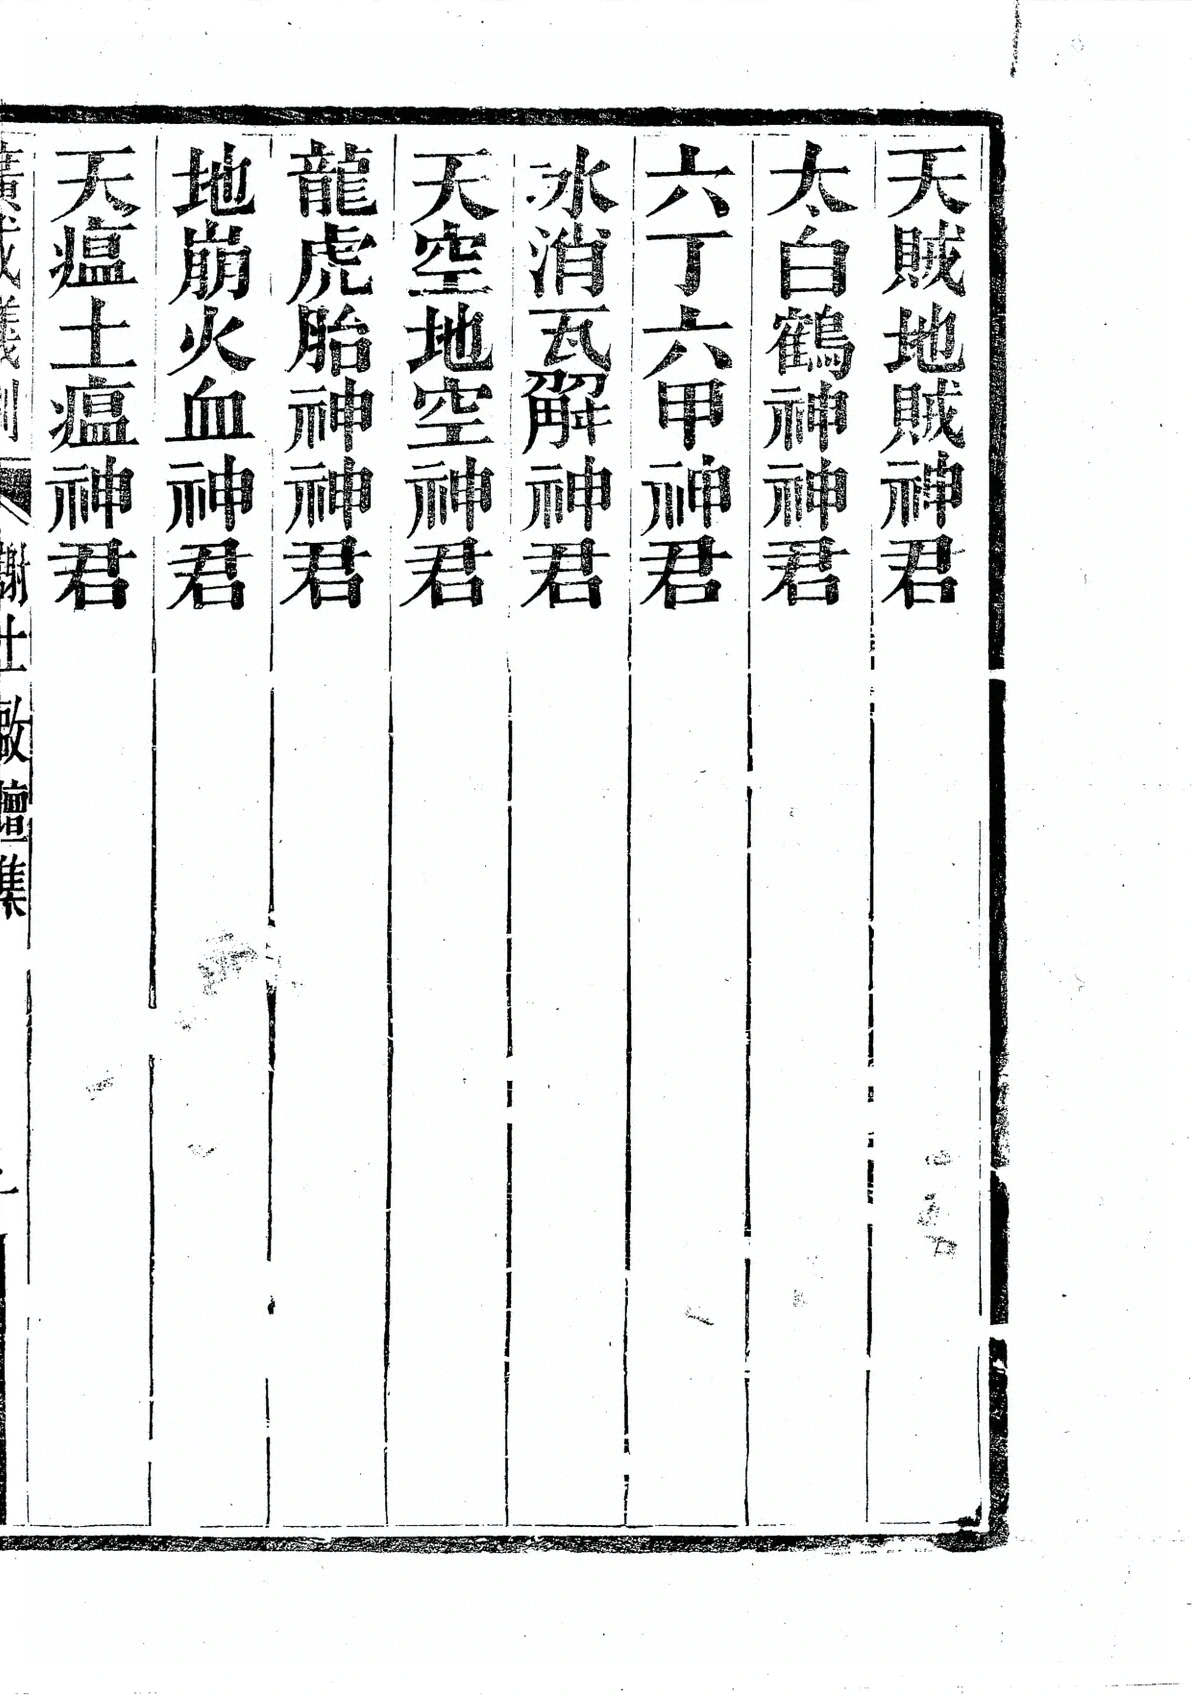 天賊地賊神君
太白鶴神神君
六丁六甲神君
氷消瓦解神君
天空地空神君
龍虎胎神神君
地崩火血神君
天瘟土瘟神君
廣成儀制
謝土啟壇集